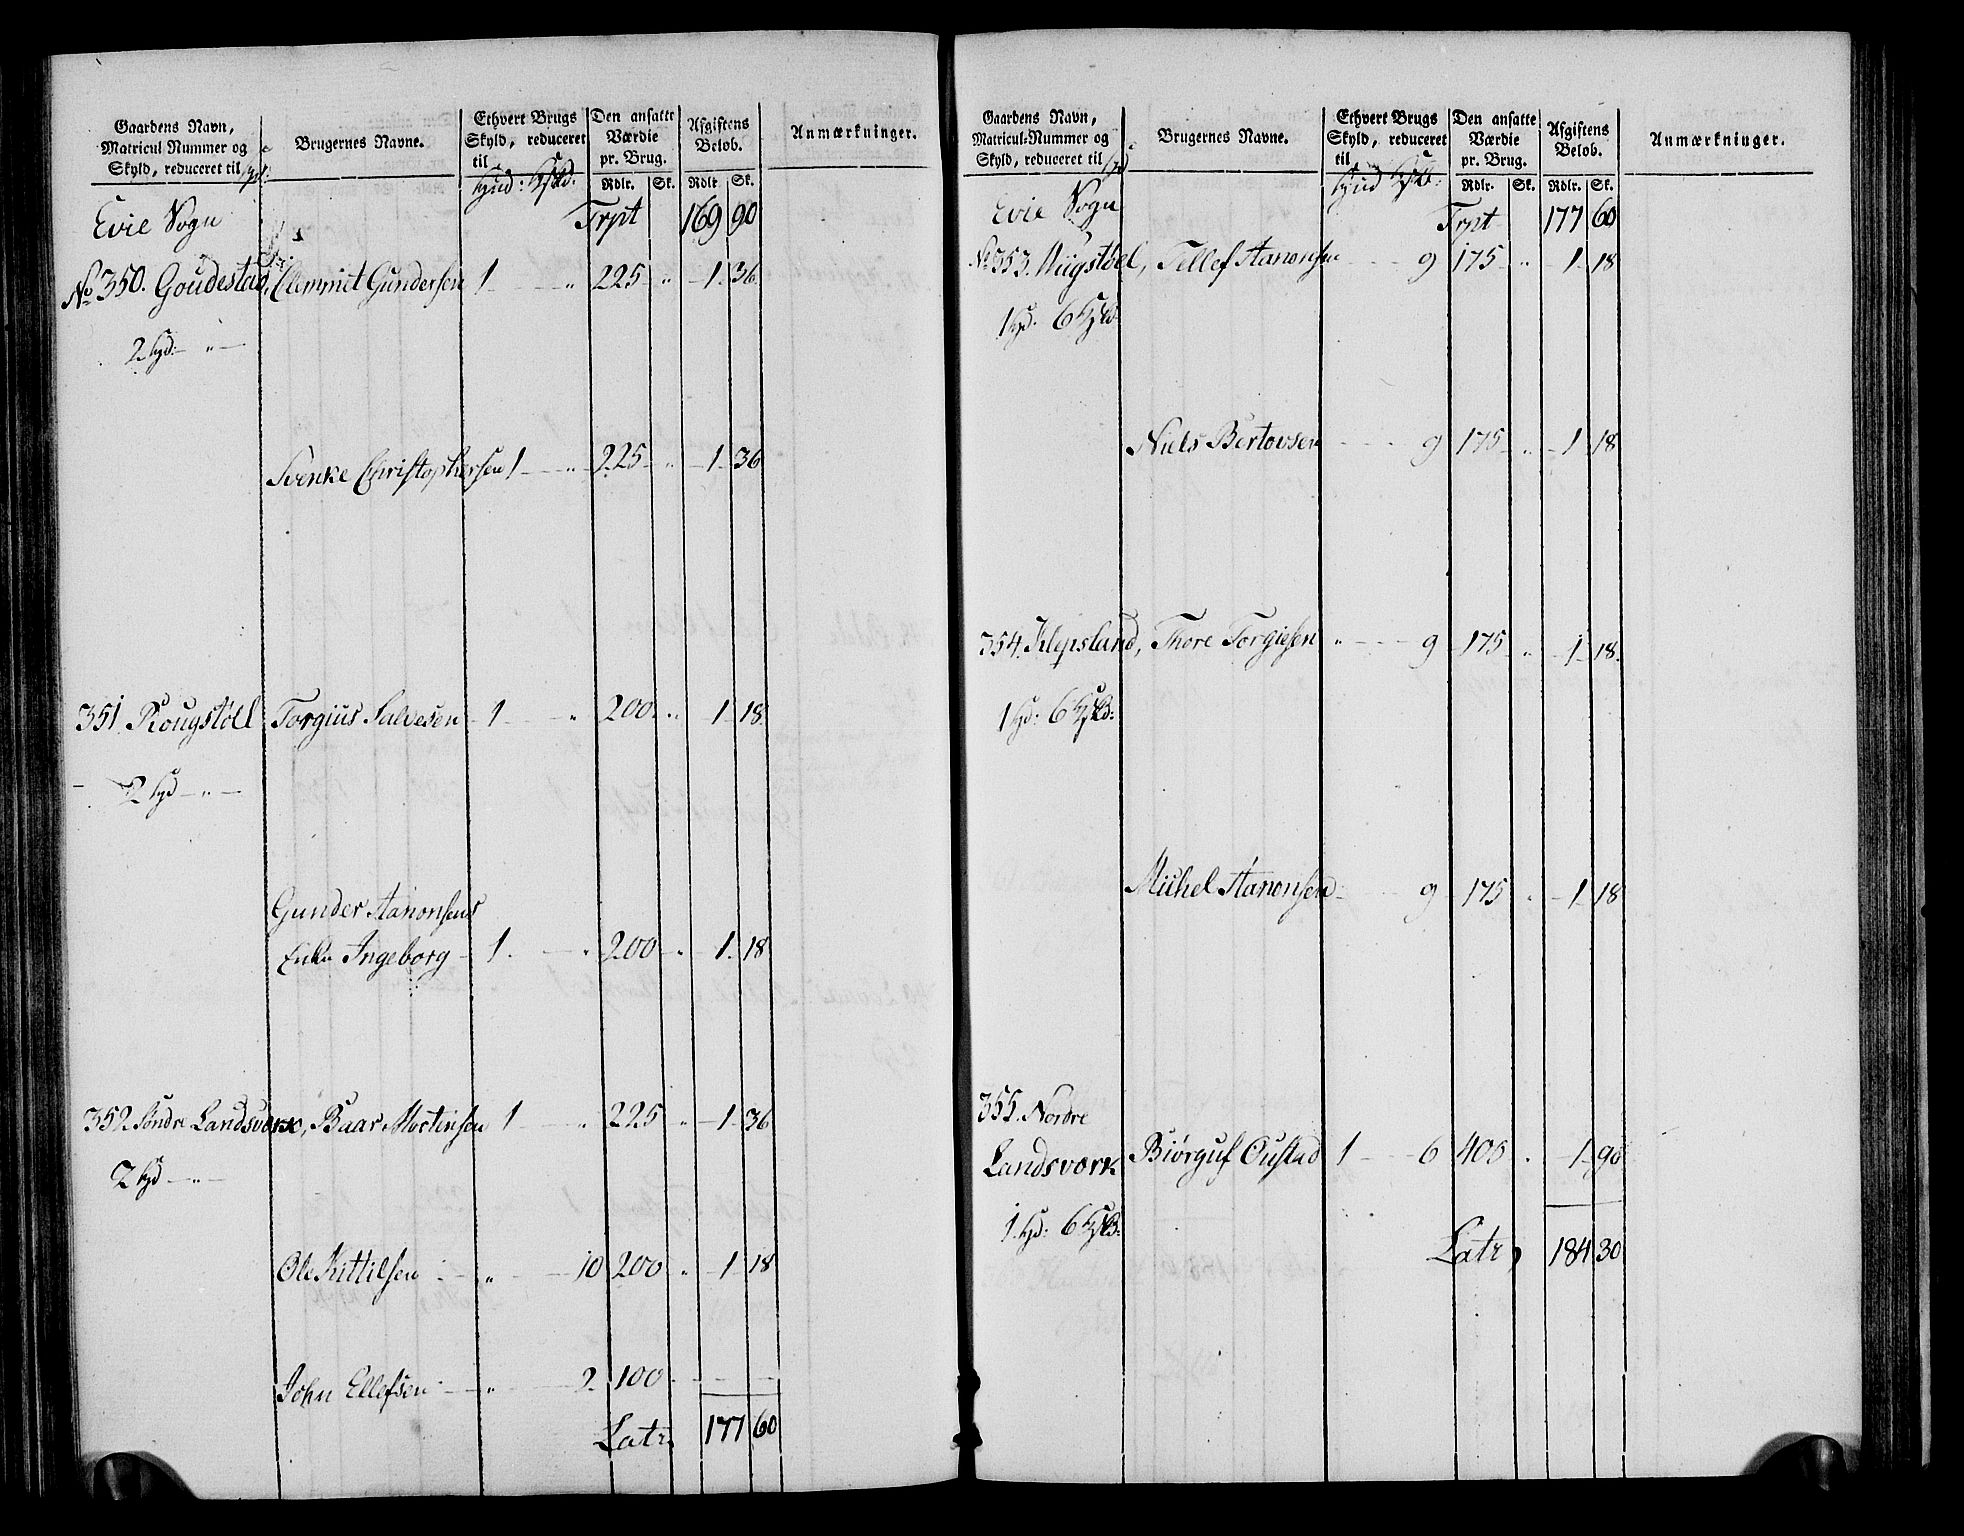 Gaardens Navn,
Matricul Nummer og
Skyld, reduceret til
Brugernes Navne.
Ethvert Brugs
Skyld, reduceret
til
Den ansatte
Værdie
pr. Brug.
Rdlr. Sk.
Afgiftens
Beløb.
Rdlr. Sk.
Anmærkninger.
Evie Sogn Trpt 169 90
No 350. Goudestad, Clemmet Gundersen 1 " 225 " 1 36
2 hd: "
Svenke Christophersen 1 " 225 " 1 36
351. Rougstøll Torgius Salvesen 1 " 200 " 1 18
2 hd "
Gunder Aanonsens
Enke Ingeborg 1 " 200 " 1 18
352 Søndre Landsværk, Baar Mortensen 1 " 225 " 1 36
2 hd "
Ole Kittilsen " 10 200 " 1 18
John Ellefsen " 2 100
Latr 177 60
Gaardens Navn,
Matricul-Nummer og
Skyld, reduceret til
Brugernes Navne.
Ethvert Brugs
Skyld, reduceret
til
Den ansatte
Værdie
pr. Brug.
Rdlr. Sk.
Afgiftens
Beløb.
Rdlr. Sk.
Anmærkninger.
Evie Sogn Trpt 177 60
No 353. Tellef Aanonsen 9 175 " 1 18
1 hd: 6
Niels Bertovsen 9 175 " 1 18
354. Klepsland, Thore Torgiesen " 9 175 " 1 18
1 hd: 6
Michel Aanonsen 9 175 " 1 18
355. Nordre
Landsværk Biørguf Oustad 1 6 400 " 1 90
1 hd: 6
Latr 184 30